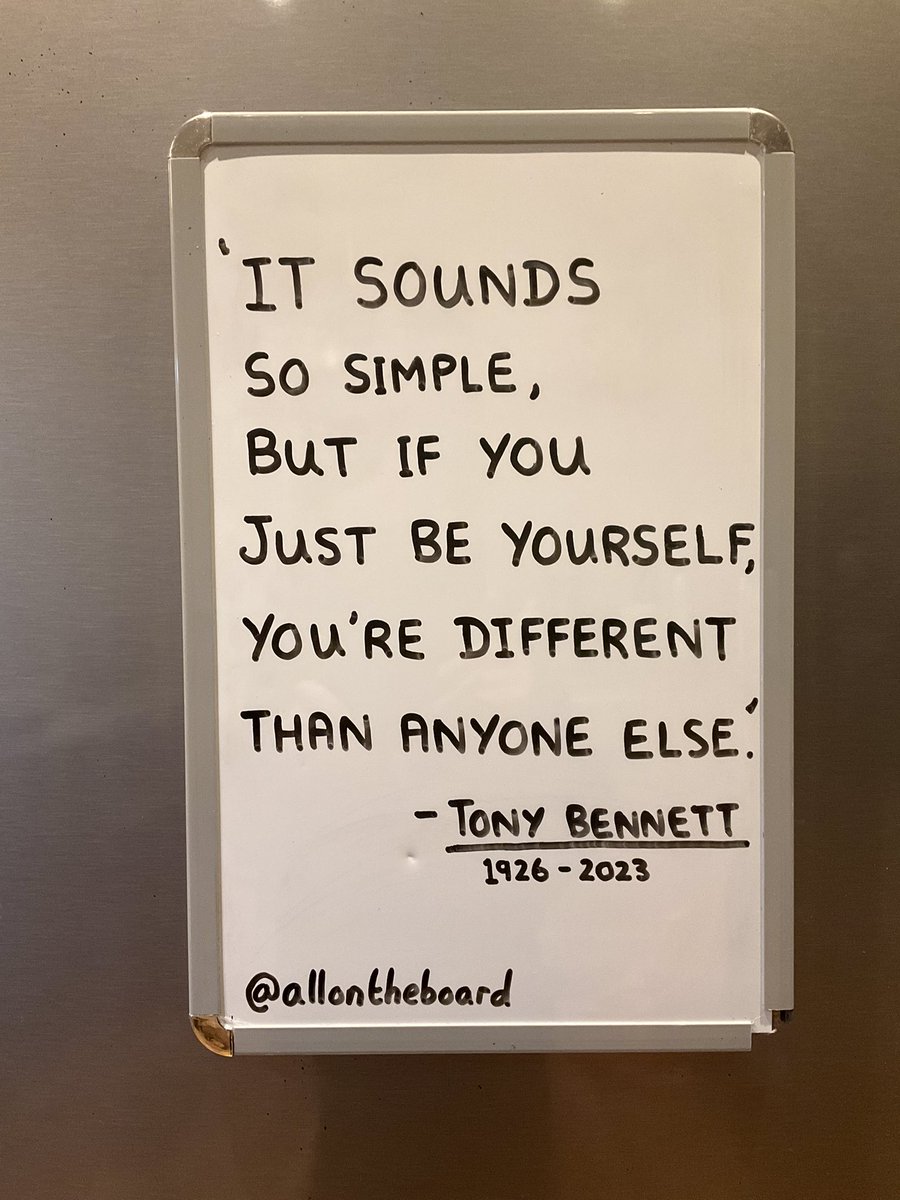 'IT SOUNDS
SO SIMPLE,
BUT IF YOU
JUST BE YOURSELF,
YOU'RE DIFFERENT
THAN ANYONE ELSE.'
- TONY BENNETT
1926 - 2023
@allontheboard